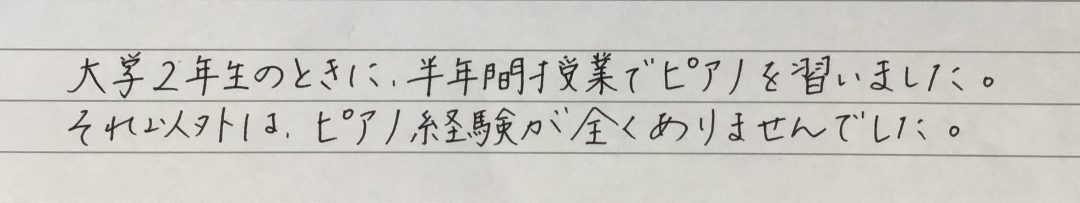 大学2年生のときに、半年間授業でピアノを習いました。
それ以外は、ピアノ経験が全くありませんでした。